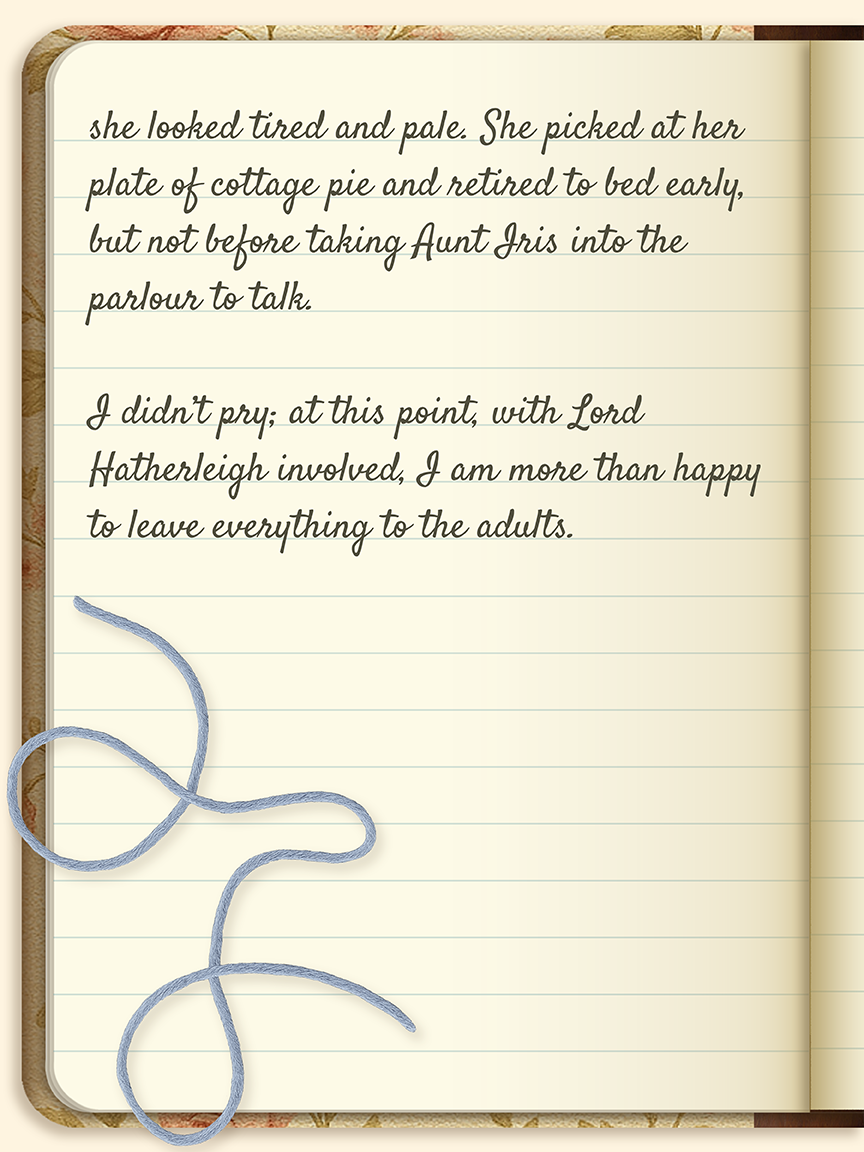 she looked tired and pale. She picked at her
plate of cottage pie and retired to bed early,
but not before taking Aunt Iris into the
parlour to talk.
I didn't pry; at this point, with Lord
Hatherleigh involved, I am more than happy
to leave everything to the adults.